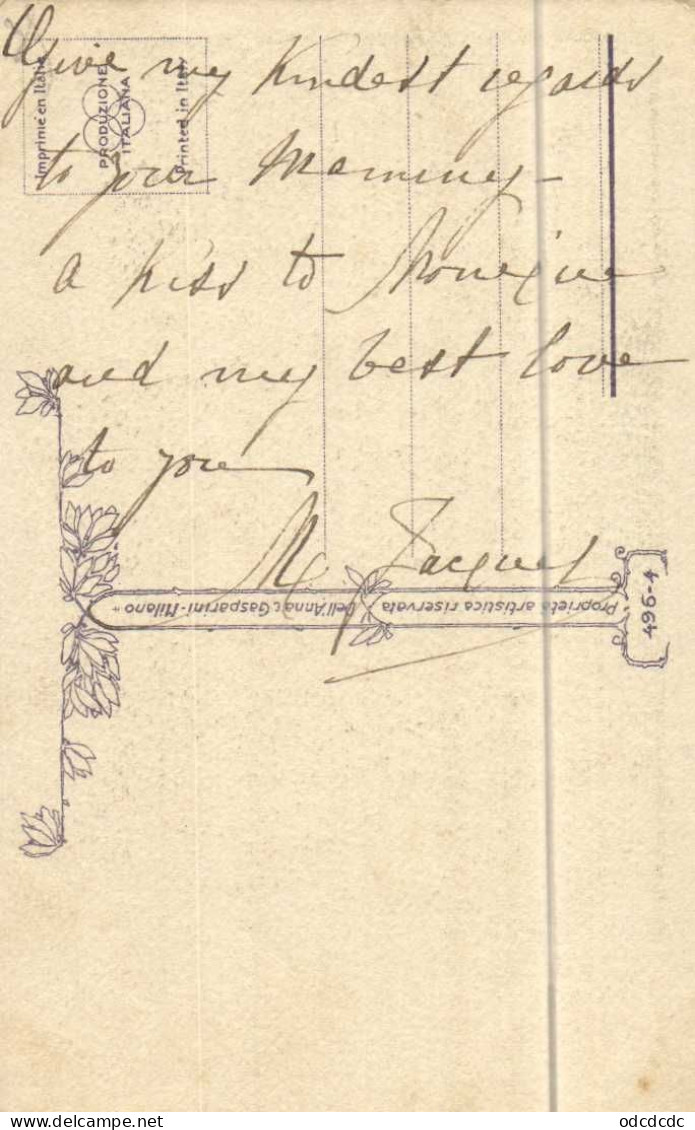 Give my Kindest regards
to your Mammy -
a kiss to Monique
and my best love
to you
M Jacques
Imprimé en Italie
PRODUZIONE
ITALIANA
Printed in Italy
Proprietà artistica riservata
Dell'Anna e Gasparini - Milano
496-4
odcdcdc